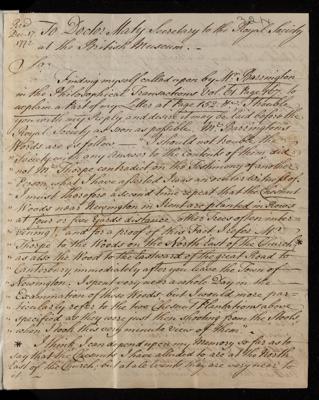 Read
Dec. 17
1772
To Doctor Maty Secretary to the Royal Society
at the British Museum. —
Sir
Finding myself called upon by Mr. Barrington
in the Philosophical Transactions Vol. 61 Page 167. to
explain a Part of my Letter at Page 152. I trouble
you with my Reply and desire it may be laid before the
Royal Society as soon as possible. Mr. Barrington's
Words are as follow — "I should not trouble the
"Society with any Answer to the Contents of them did
"not Mr. Thorpe contradict on the testimony of another
"Person what I have asserted I saw as ocular
"I must therefore a second time repeat that the Chesnut
"Woods near Newington in Kent are planted in Rows
"at four or five Yards distance (other Trees often inter-
"vening) and for a proof of this Fact I refer Mr.
"Thorpe to the Woods on the North East of the Church*
"as also the Wood to the Eastward of the great Road to
"Canterbury immediately after you leave the Town of
"Newington. I spent very near a whole Day in the
"Examination of these Woods but I would more par-
"ticularly refer to the two Chesnut Plantations above
"specified as they were just then shooting from the Stools
"when I took this very minute view of them"
* I think, I can depend upon my Memory so far as to
say that the Chesnuts I have alluded to are at the North
East of the Church, but at all Events they are very near to
it